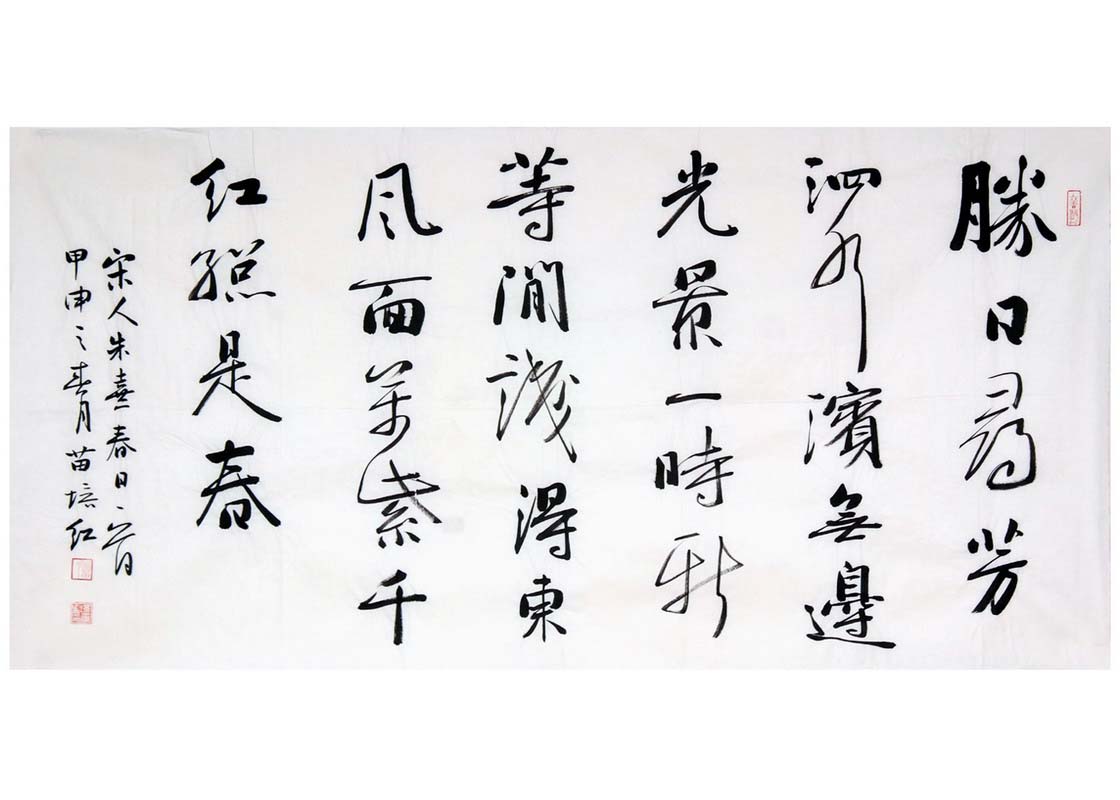 勝日尋芳
泗水濱無邊
光景一時新
等閒識得東
風面萬紫千
红總是春
宋人朱熹春日一首
甲申之春月苗培红